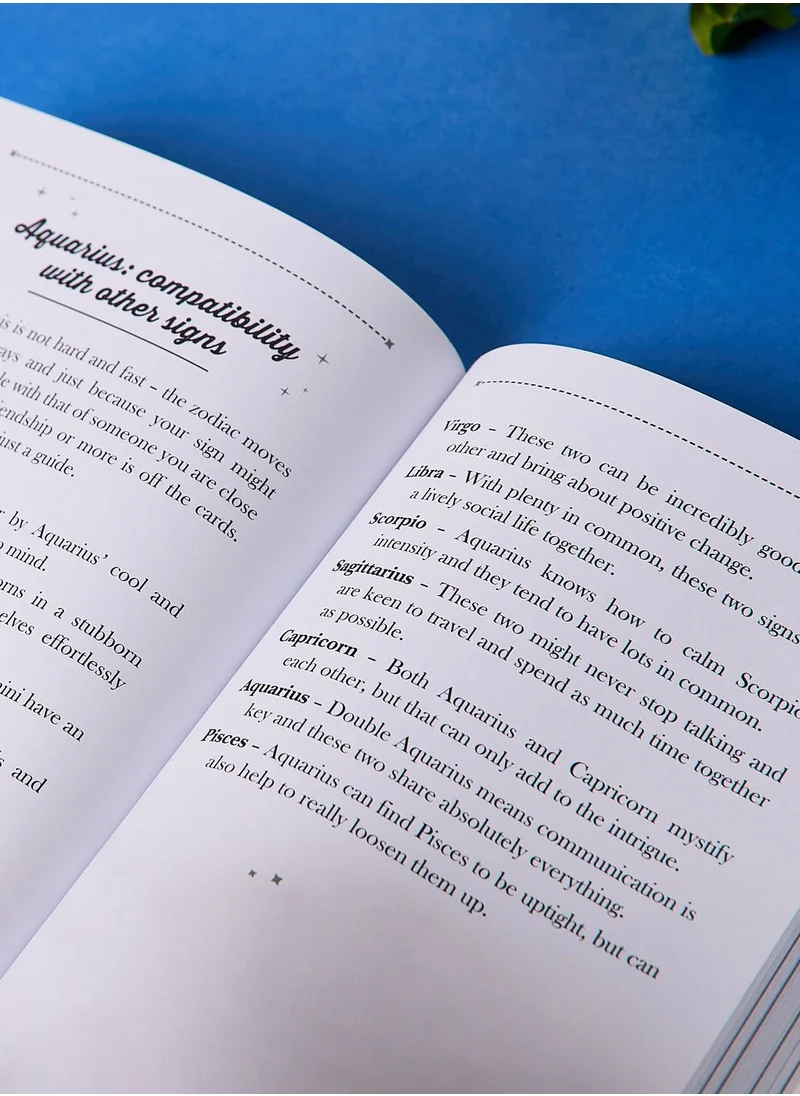 Aquarius: compatibility
with other signs
is is not hard and fast – the zodiac moves
ays and just because your sign might
le with that of someone you are close
endship or more is off the cards.
just a guide.
r by Aquarius' cool and
o mind.
orns in a stubborn
elves effortlessly
nini have an
s and
Virgo – These two can be incredibly good
other and bring about positive change.
Libra – With plenty in common, these two signs
a lively social life together.
Scorpio – Aquarius knows how to calm Scorpio
intensity and they tend to have lots in common.
Sagittarius – These two might never stop talking and
are keen to travel and spend as much time together
as possible.
Capricorn – Both Aquarius and Capricorn mystify
each other, but that can only add to the intrigue.
Aquarius – Double Aquarius means communication is
key and these two share absolutely everything.
Pisces – Aquarius can find Pisces to be uptight, but can
also help to really loosen them up.